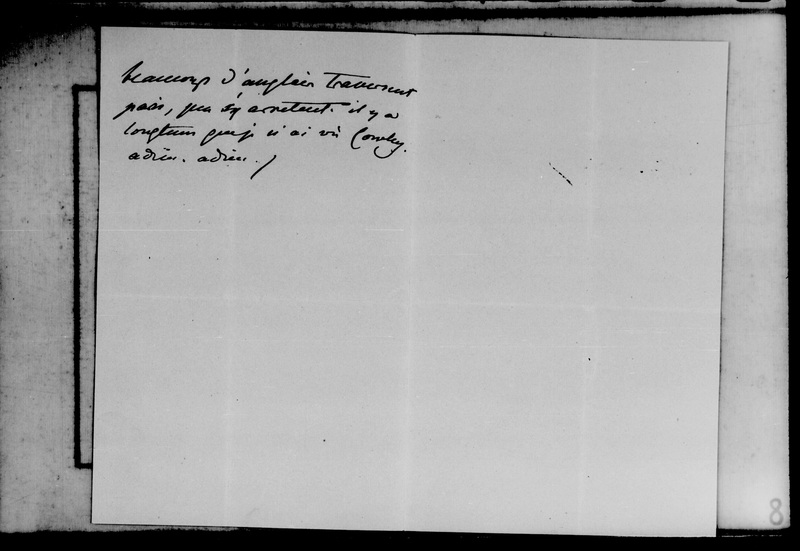 beaucoup d'anglais traversent
paris, peu s'y arretent. il y a
longtems que je n'ai vu Cowley.
adieu. adieu.
8